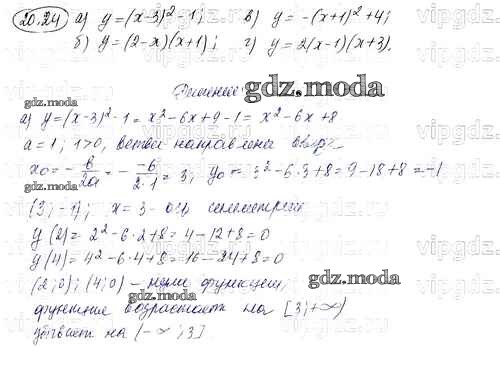 20.24 а) y=(x-3)²-1; в) y=-(x+1)²+4;
б) y=(2-x)(x+1); г) y=2(x-1)(x+3).
Решение
gdz.moda
gdz.moda
а) y=(x-3)²-1=x²-6x+9-1=x²-6x+8
a=1; 1>0, ветви направлены вверх
x₀=-b/2a=-(-6)/(2·1)=3; y₀=3²-6·3+8=9-18+8=-1
gdz.moda
(3;-1); x=3-ось симметрии
y(2)=2²-6·2+8=4-12+8=0
y(4)=4²-6·4+8=16-24+8=0
(2;0); (4;0) - нули функции;
gdz.moda
функция возрастает на [3;+∞)
gdz.moda
убывает на (-∞;3]